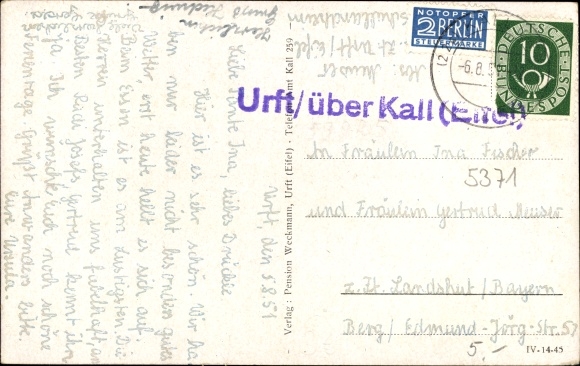 Herzlichen
Gruß
Urft, den 5.8.51
Liebe Tante Ina, liebe Drückie
Hier ist es sehr schön. Wir ha
ben nur leider nicht besonders gutes
Wetter erst heute hellt es sich auf.
Beim Essen ist es am lustigsten Die
Herren unterhalten uns fabelhaft, am
besten Kaci Josefs, Gertrud kennt ihn
ja. Ich wünsche Euch noch schöne
Ferientage. Grüßt Anwanders bitte.
eure Ursula.
Verlag: Pension Weckmann, Urft (Eifel) - Telefon: Amt Kall 259
Abs. Meuser
z. Zt. Urft/Eifel
NOTOPFER
2 BERLIN
STEUERMARKE
DEUTSCHE
10
BUNDESPOST
-6.8.
Urft/über Kall (Eifel)
An Fräulein Ina Fischer
5371
und Fräulein Gertrud Meuser
z. Zt. Landshut/Bayern
Berg/Edmund-Jörg-Str. 57
5.-
IV-14-45